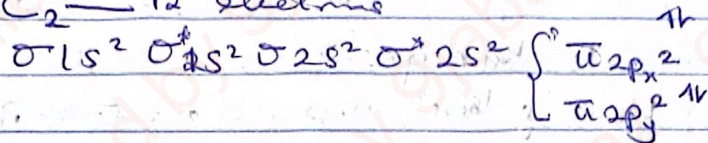 C₂ — 12 electrons
σ1s² σ*1s² σ2s² σ*2s² { π2pₓ² ↑↓
π2pᵧ² ↑↓